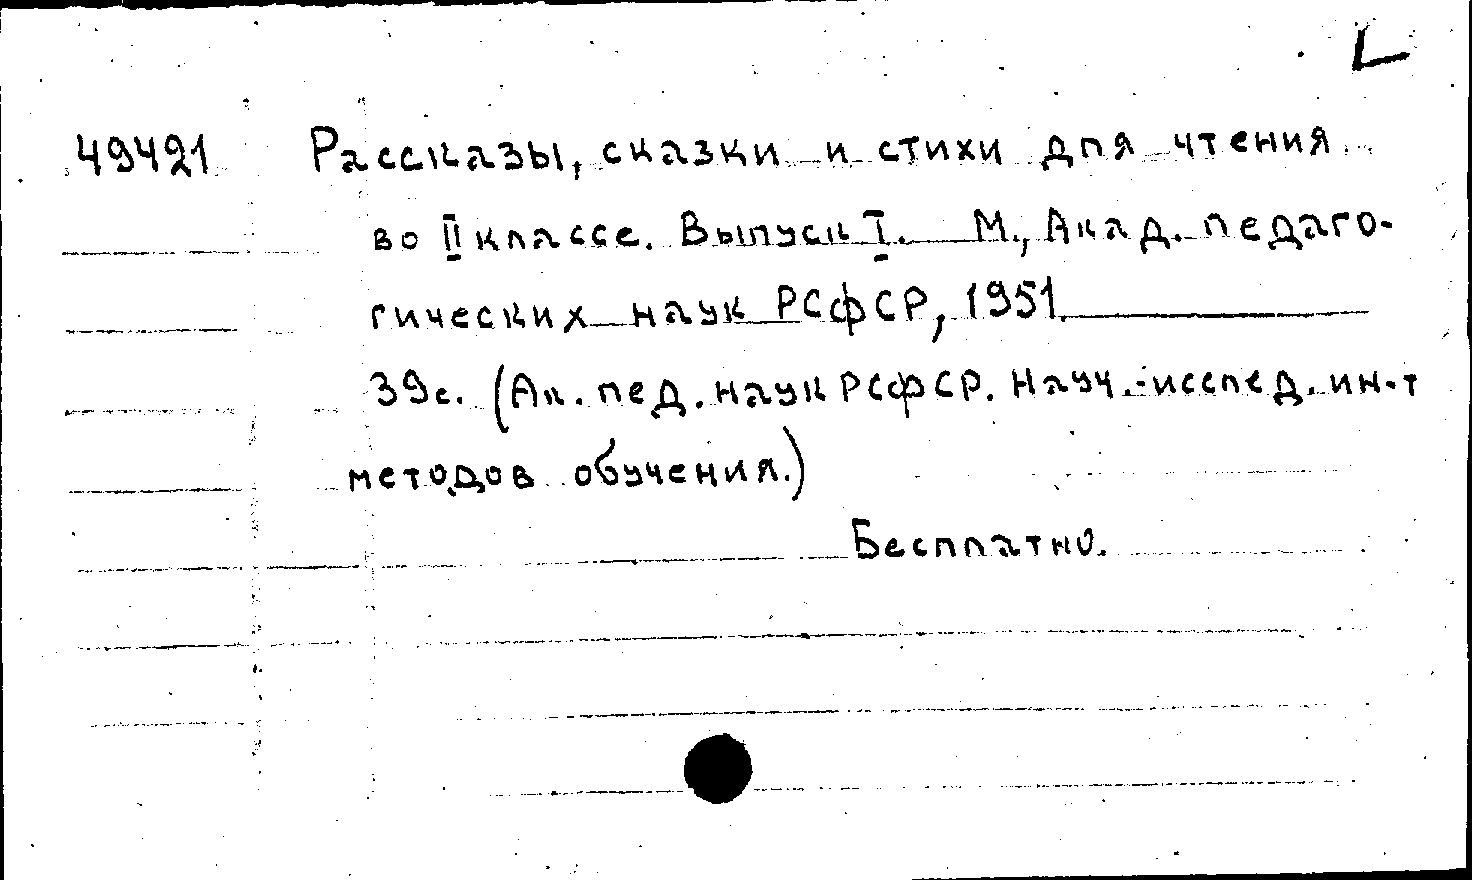 49421 Рассказы, сказки и стихи для чтения
во II классе. Выпуск I. М., Акад. педаго-
гических наук РСФСР, 1951.
39с. (Ак. пед. наук РСФСР. Науч.-исслед. ин-т
методов обучения.)
Бесплатно.